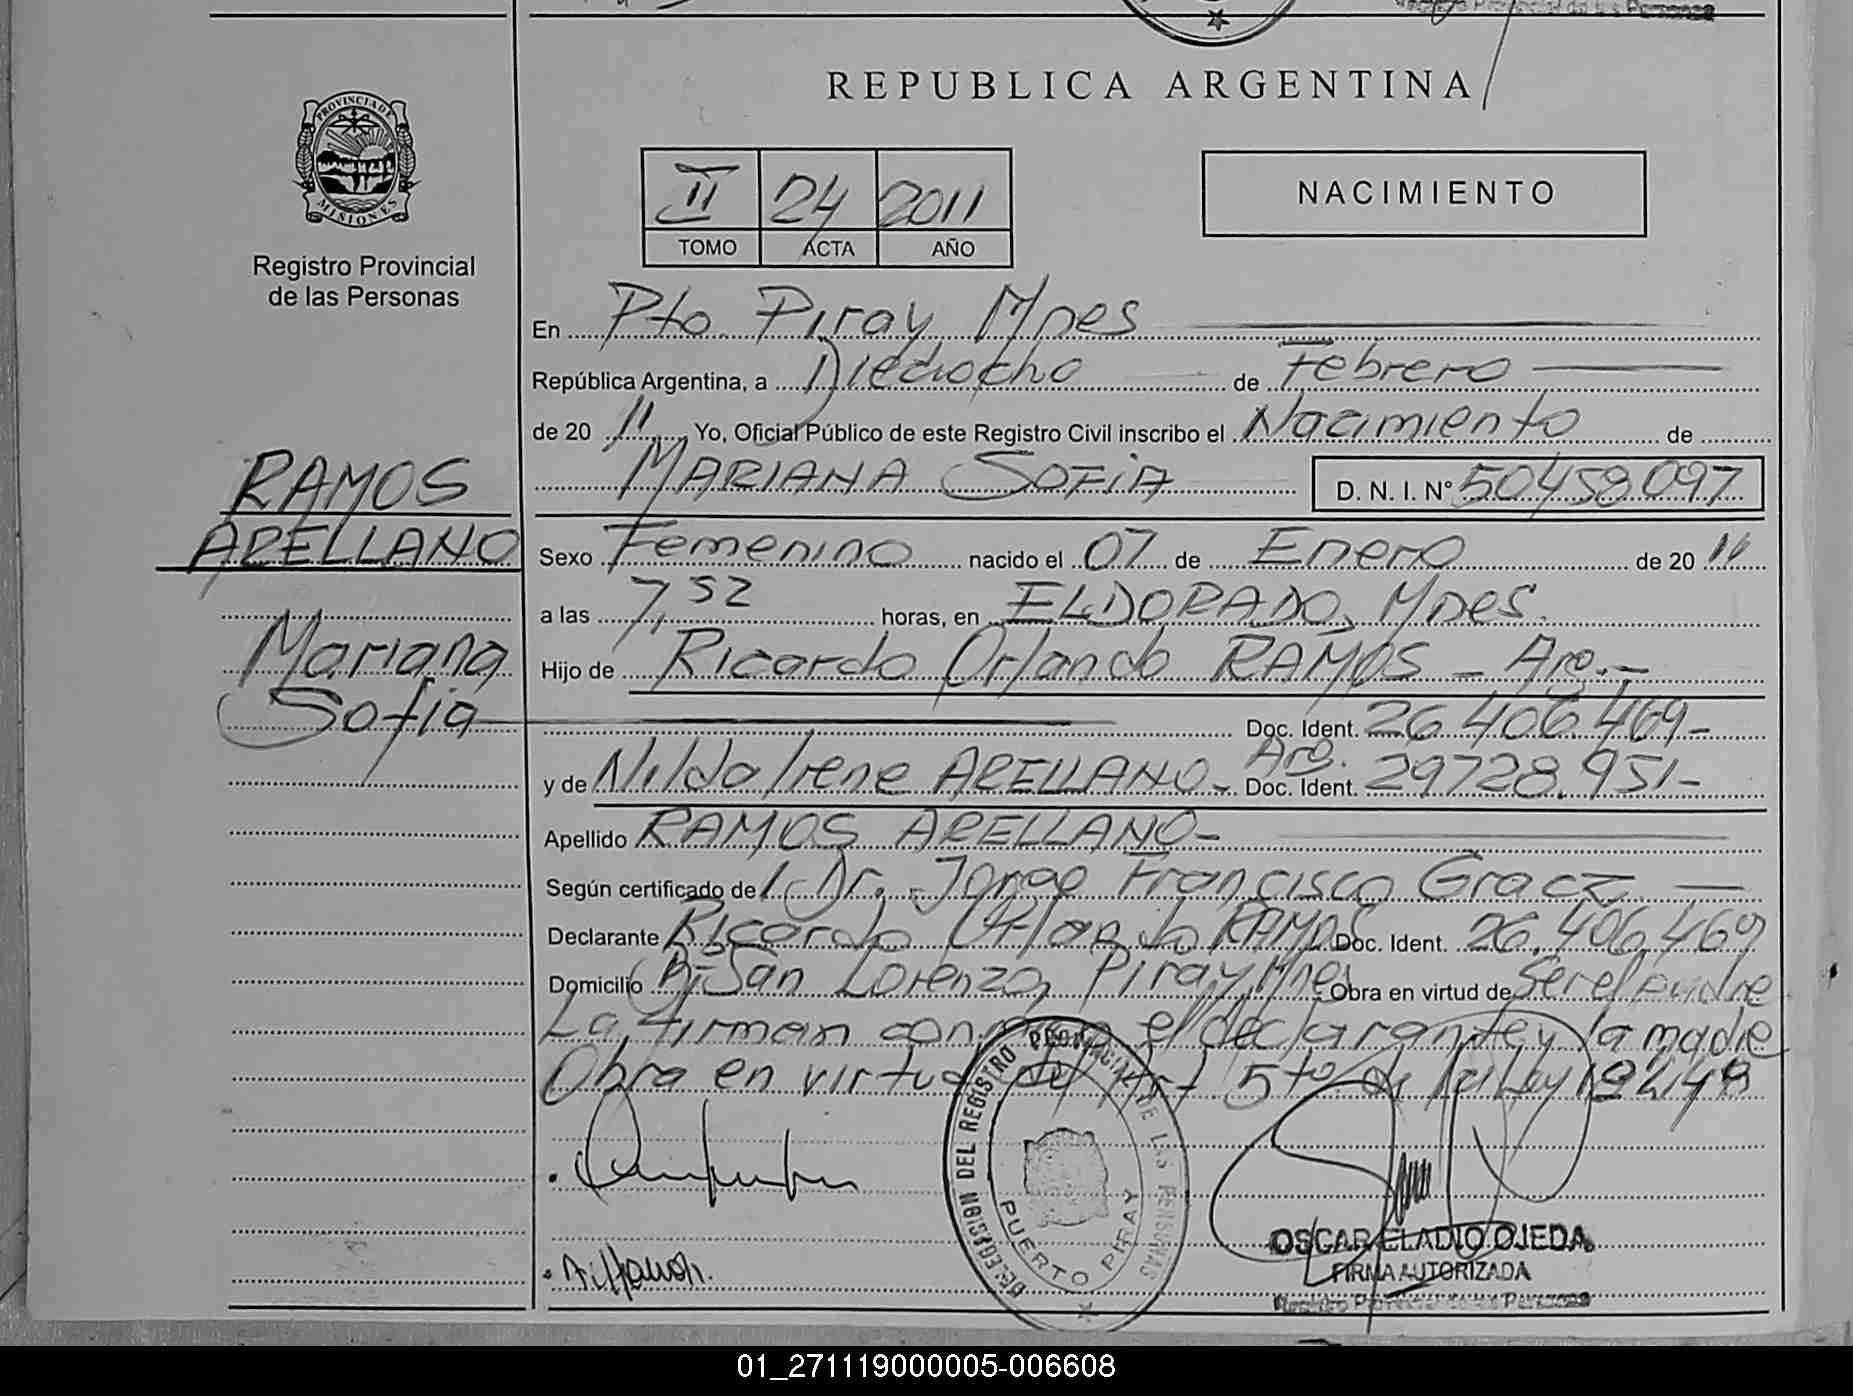 REPUBLICA ARGENTINA
PROVINCIA DE
MISIONES
Registro Provincial
de las Personas
II 24 2011
TOMO ACTA AÑO
NACIMIENTO
En Pto Piray Mnes
República Argentina, a Dieciocho de Febrero
de 20 11 Yo, Oficial Público de este Registro Civil inscribo el Nacimiento de
MARIANA SOFIA D. N. I. N° 50458097
RAMOS
ARELLANO
Mariana
Sofia
Sexo Femenino nacido el 07 de Enero de 20 11
a las 7,52 horas, en ELDORADO, Mnes.
Hijo de Ricardo Orlando RAMOS - Arg.-
Doc. Ident. 26.406.469-
y de Nilda Irene ARELLANO- Arg. Doc. Ident. 29728.951-
Apellido RAMOS ARELLANO-
Según certificado de Dr. Jorge Francisco Gracz
Declarante Ricardo Orlando RAMOS Doc. Ident. 26.406.469
Domicilio Bº San Lorenzo, Piray Mnes Obra en virtud de Ser el Padre
La firman conmigo el declarante y la madre
Obra en virtud del Art 5to de la Ley 18248
DELEGACION DEL REGISTRO PROVINCIAL DE LAS PERSONAS
PUERTO PIRAY
OSCAR ELADIO OJEDA
FIRMA AUTORIZADA
Registro Provincial de las Personas
01_271119000005-006608